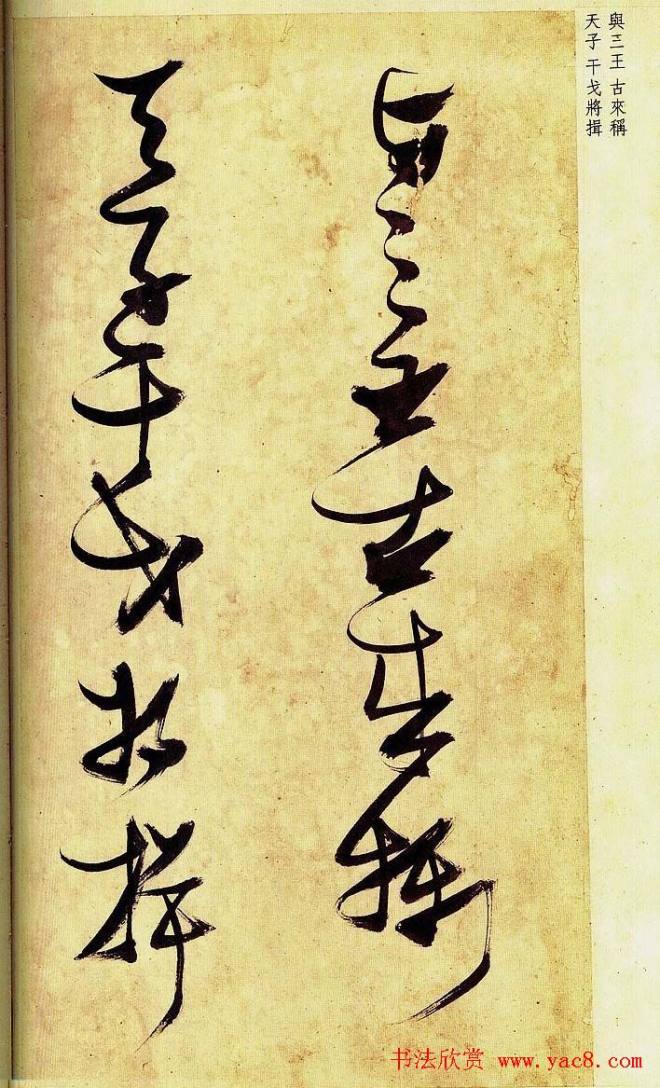 與三王 古來稱
天子 干戈將揖
與三王古來稱
天子干戈將揖
书法欣赏 www.yac8.com